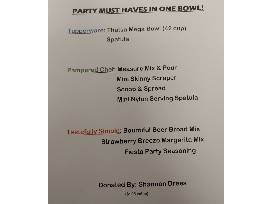 PARTY MUST HAVES IN ONE BOWL!
Tupperware: Thatsa Mega Bowl (42 cup)
Spatula
Pampered Chef: Measure Mix & Pour
Mini Skinny Scraper
Scoop & Spread
Mini Nylon Serving Spatula
Tastefully Simple: Bountiful Beer Bread Mix
Strawberry Breeze Margarita Mix
Fiesta Party Seasoning
Donated By: Shannon Drees